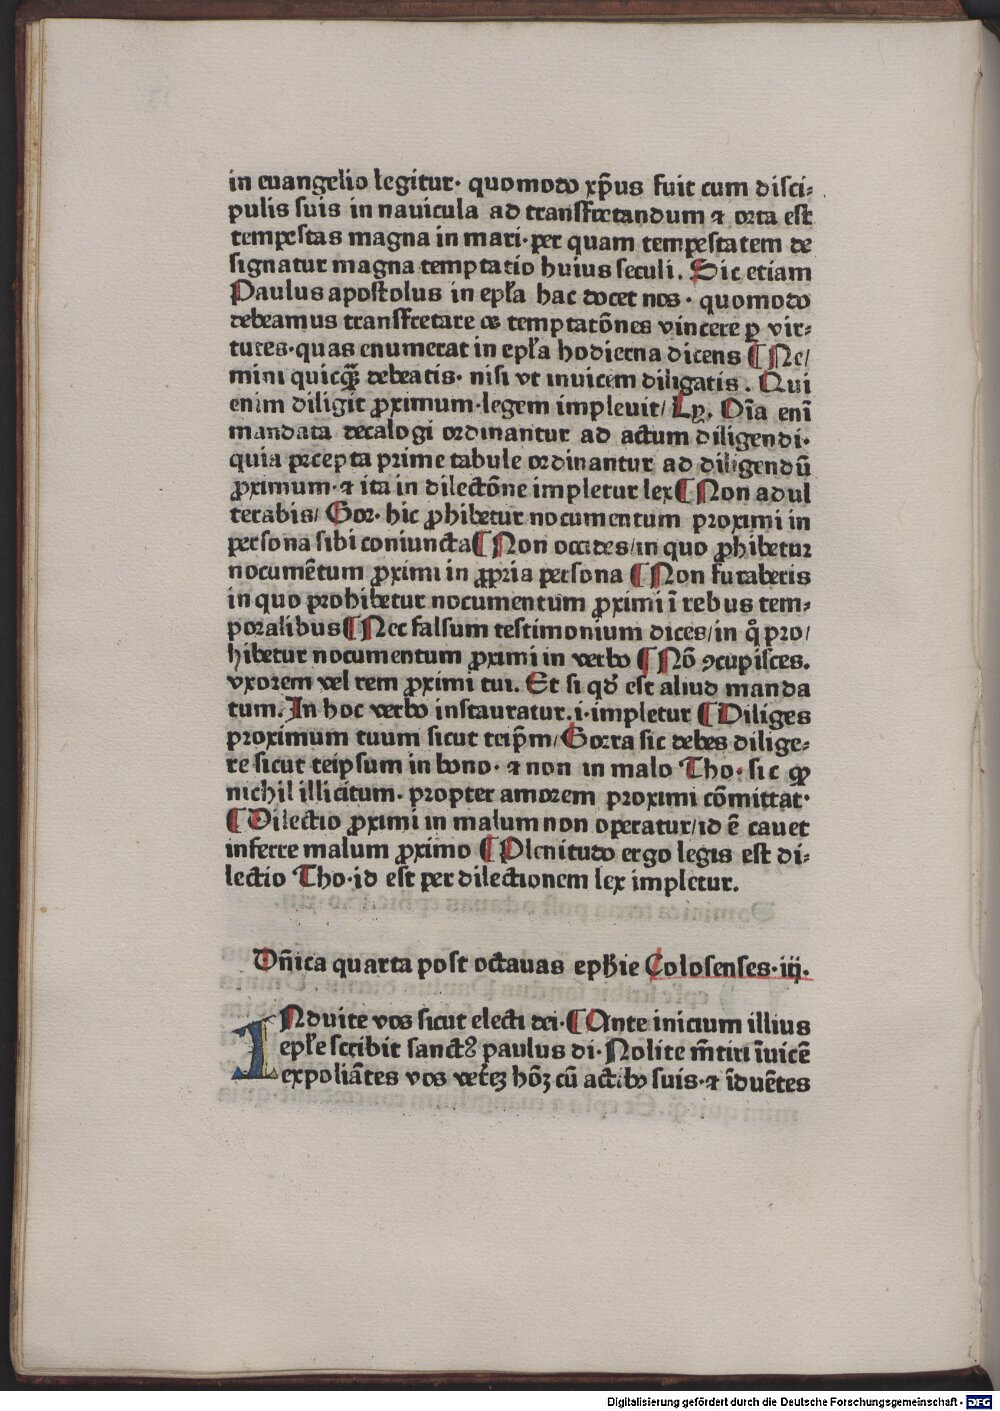 in euangelio legitur· quomodo xp̄us fuit cum disci⸗
pulis suis in nauicula ad transfretandum ⁊ orta est
tempestas magna in mari· per quam tempestatem de
signatur magna temptatio huius seculi. Sic etiam
Paulus apostolus in ep̄ła hac docet nos· quomodo
debeamus transfretare ⁊ temptatōnes vincere ꝑ vir⸗
tutes· quas enumerat in ep̄ła hodierna dicens ¶ Ne/
mini quicq̄ꝫ debeatis· nisi vt inuicem diligatis. Qui
enim diligit ꝓximum· legem impleuit/ Ly. Oīa enī
mandata decalogi ordinantur ad actum diligendi·
quia precepta prime tabule ordinantur ad diligendū
ꝓximum· ⁊ ita in dilectōne impletur lex ¶ Non adul
terabis/ Gor· hic ꝓhibetur nocumentum proximi in
persona sibi coniuncta ¶ Non occides/ in quo ꝓhibetur
nocumētum ꝓximi in ꝓpria persona ¶ Non furaberis
in quo prohibetur nocumentum ꝓximi ī rebus tem⸗
poralibus ¶ Nec falsum testimonium dices/ in q̊ pro/
hibetur nocumentum ꝓximi in verbo ¶ Nō ꝯcupisces.
vxorem vel rem ꝓximi tui. Et si qd̄ est aliud manda
tum. In hoc verbo instauratur. i· impletur ¶ Diliges
proximum tuum sicut teip̄m/ Gorra sic debes dilige⸗
re sicut teipsum in bono· ⁊ non in malo Tho· sic ꝙ
nichil illicitum· propter amorem proximi cōmittat·
¶ Dilectio ꝓximi in malum non operatur/ id ē cauet
inferre malum ꝓximo ¶ Plenitudo ergo legis est di⸗
lectio Tho· id est per dilectionem lex impletur.
Dn̄ica quarta post octauas epħie Colosenses· iij.
INduite vos sicut electi dei· ¶ Ante inicium illius
ep̄łe scribit sanctꝰ paulus di· Nolite m̄tiri īuicē
expoliātes vos veteꝫ hōꝫ cū actibꝫ suis· ⁊ īduētes
Digitalisierung gefördert durch die Deutsche Forschungsgemeinschaft - DFG